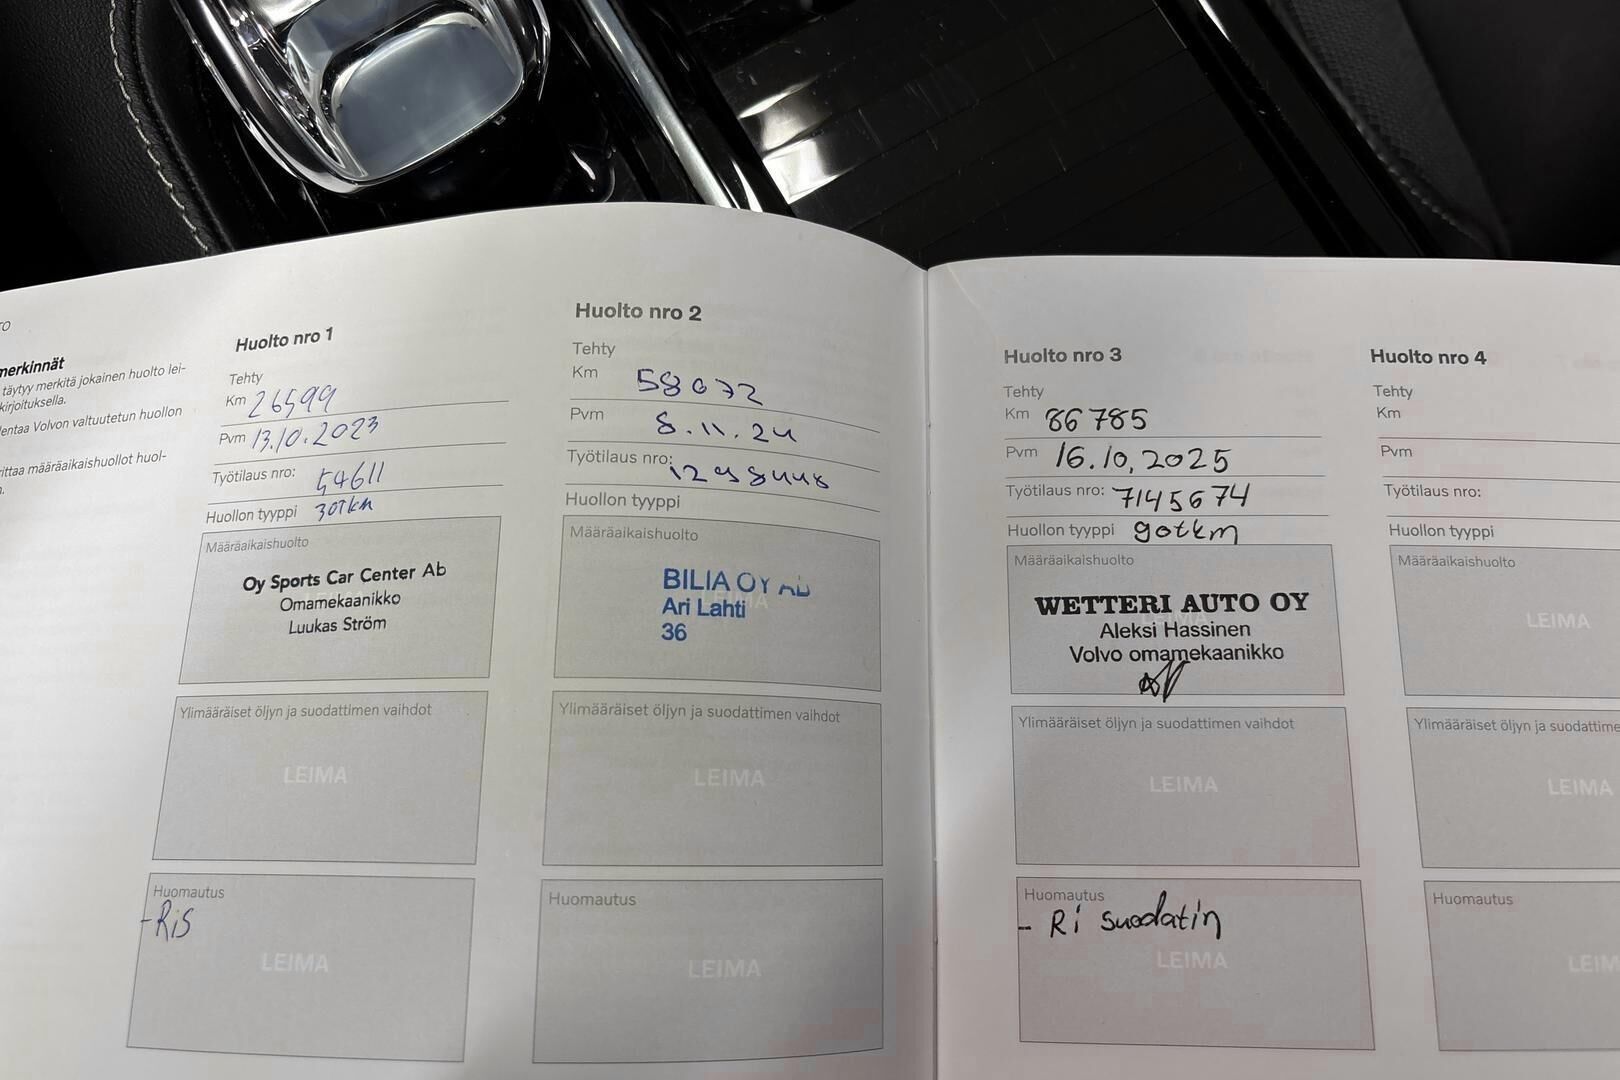 merkinnät
täytyy merkitä jokainen huolto lei-
kirjoituksella.
entaa Volvon valtuutetun huollon
rittaa määräaikaishuollot huol-
Huolto nro 1
Tehty
Km 26599
Pvm 13.10.2023
Työtilaus nro: 54611
Huollon tyyppi 30Tkm
Määräaikaishuolto
Oy Sports Car Center Ab
Omamekaanikko
Luukas Ström
Ylimääräiset öljyn ja suodattimen vaihdot
LEIMA
Huomautus
- Ris
LEIMA
Huolto nro 2
Tehty
Km 58072
Pvm 8.11.24
Työtilaus nro:
Huollon tyyppi
Määräaikaishuolto
BILIA OY AB
Ari Lahti
36
Ylimääräiset öljyn ja suodattimen vaihdot
LEIMA
Huomautus
LEIMA
Huolto nro 3
Tehty
Km 86785
Pvm 16.10.2025
Työtilaus nro: 7145674
Huollon tyyppi 90tkm
Määräaikaishuolto
WETTERI AUTO OY
Aleksi Hassinen
Volvo omamekaanikko
Ylimääräiset öljyn ja suodattimen vaihdot
LEIMA
Huomautus
- Ri suodatin
LEIMA
Huolto nro 4
Tehty
Km
Pvm
Työtilaus nro:
Huollon tyyppi
Määräaikaishuolto
LEIMA
Ylimääräiset öljyn ja suodattime
LEIMA
Huomautus
LEIM